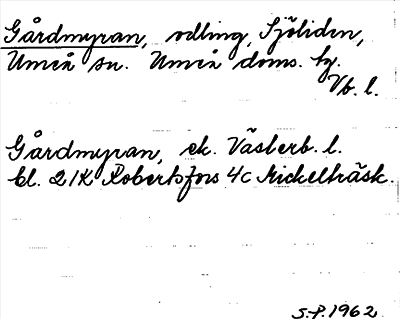 Gårdmyran, odling, Sjöliden,
Umeå sn. Umeå doms. hg.
Vb. l.
Gårdmyran, ek. Västerb. l.
bl. 21K Robertsfors 4c Mickelträsk.
S.P. 1962